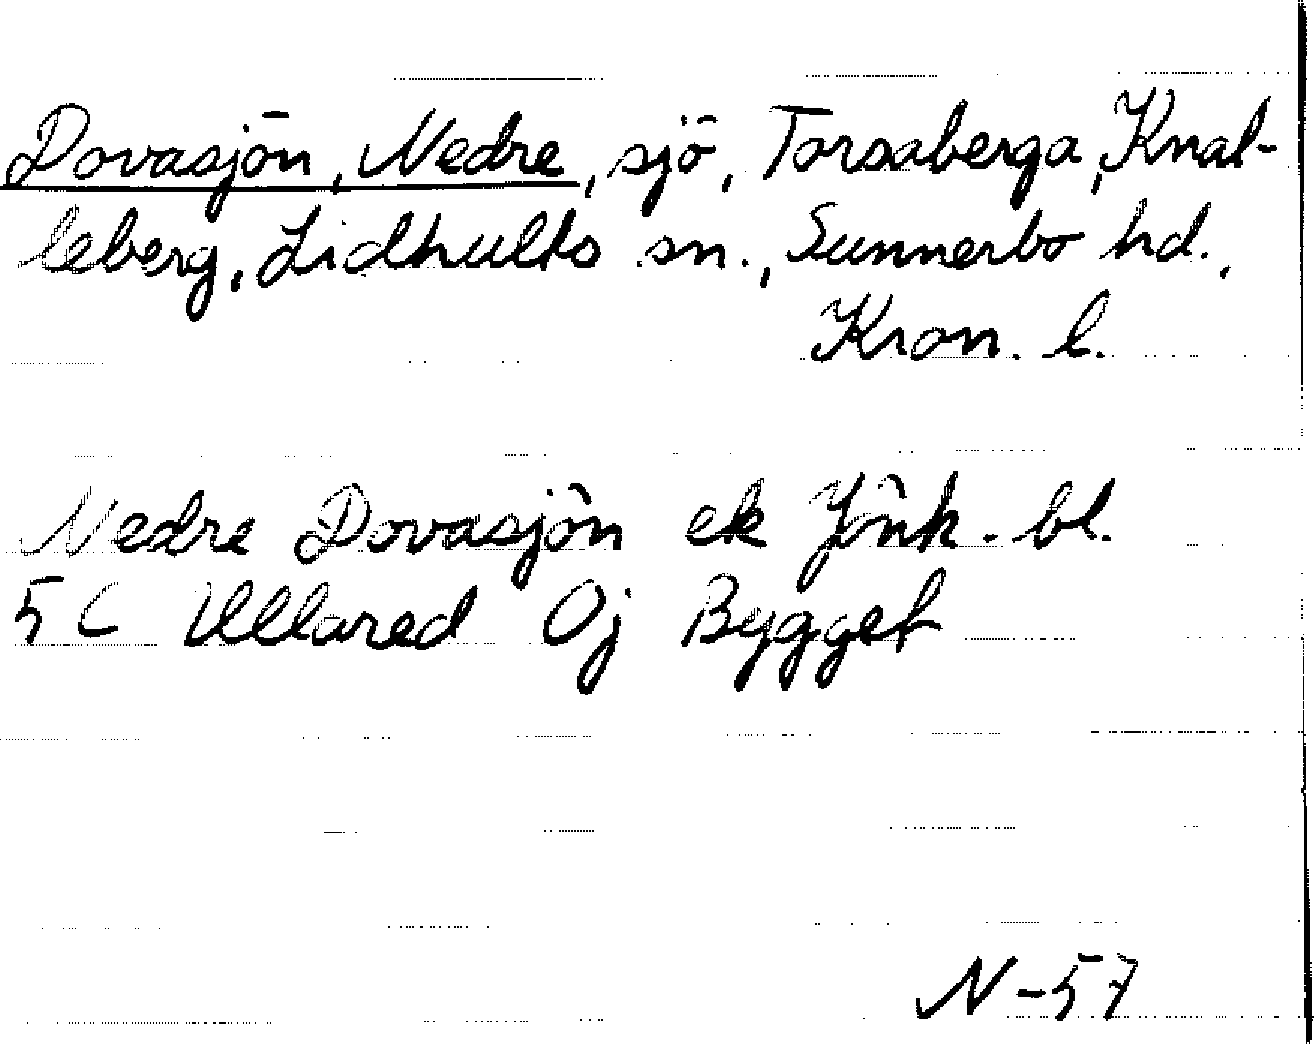 Dovasjön, Nedre, sjö, Torsaberga, Knal-
leberg, Lidhults sn., Sunnerbo hd.,
Kron. l.
Nedre Dovasjön ek Jönk. bl.
5 C Ullared Oj Bygget
N-57